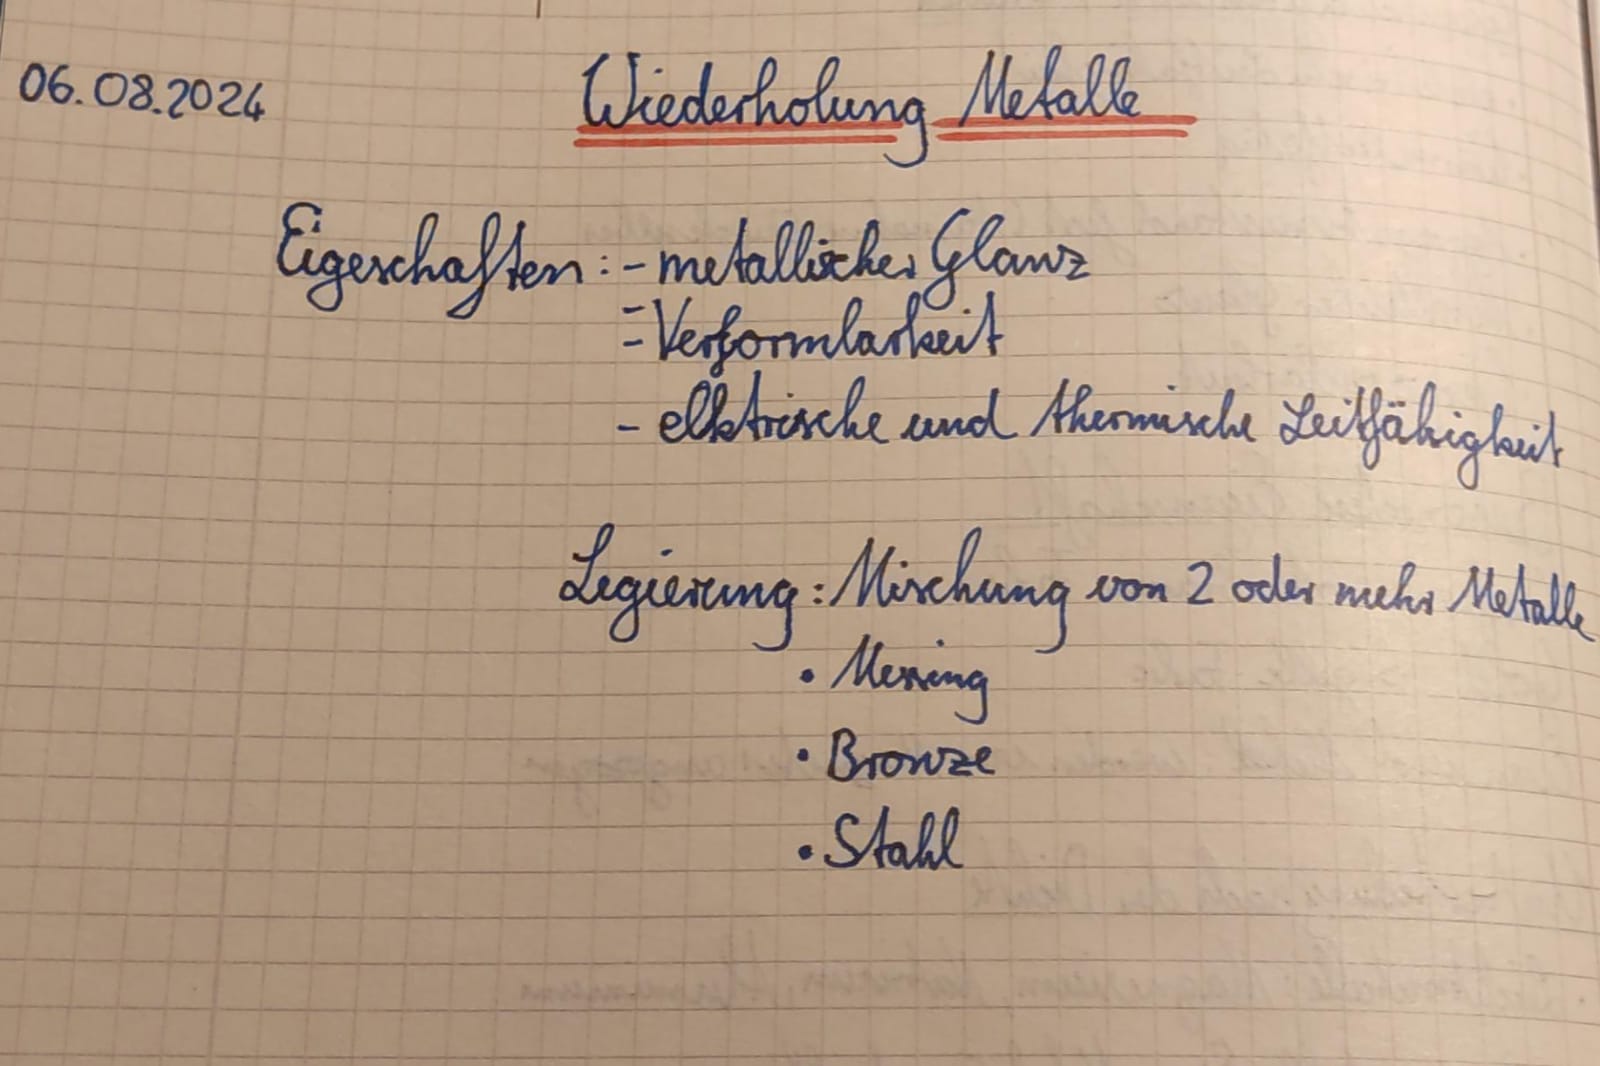 06.08.2024 Wiederholung Metalle
Eigeschaften: - metallischer Glanz
- Verformbarkeit
- elktrische und thermische Leitfähigkeit
Legierung: Mischung von 2 oder mehr Metalle
• Messing
• Bronze
• Stahl